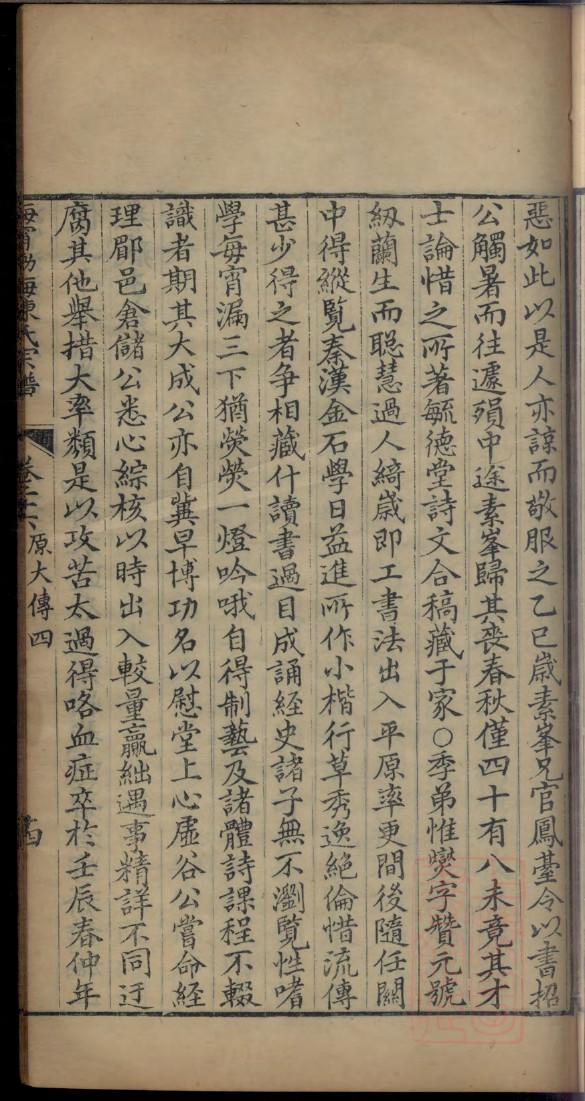 惡如此以是人亦諒而敬服之乙巳嵗素峯兄官鳳臺令以書招
公觸暑而往遽殞中途素峯歸其喪春秋僅四十有八未竟其才
士論惜之所著毓德堂詩文合稿藏于家○季弟惟爕字贊元號
紉蘭生而聡慧過人綺嵗即工書法出入平原率更間後隨任關
中得縱覧秦漢金石學日益進所作小楷行草秀逸絶倫惜流傳
甚少得之者争相藏什讀書過目成誦經史諸子無不瀏覧性嗜
學每宵漏三下猶熒熒一燈吟哦自得制藝及諸體詩課程不輟
識者期其大成公亦自冀早博功名以慰堂上心虛谷公嘗命經
理郿邑倉儲公悉心綜核以時出入較量贏絀遇事精詳不同迂
腐其他舉措大率類是以攻苦太過得咯血症卒於壬辰春仲年
海寧渤海陳氏宗譜 卷二十六 原大傳四